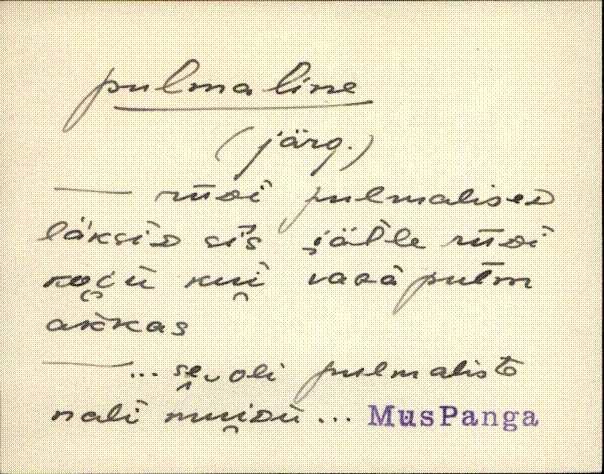 pulmaline
(järg.)
— rüɢi pulmaliseᴅ
läksiᴅ sis jälle rüɢi
koɢ́ü kui vaʙà pulm
akkas
— ... se‿oli pulmalistᴇ
nali muiᴅù ... MusPanga